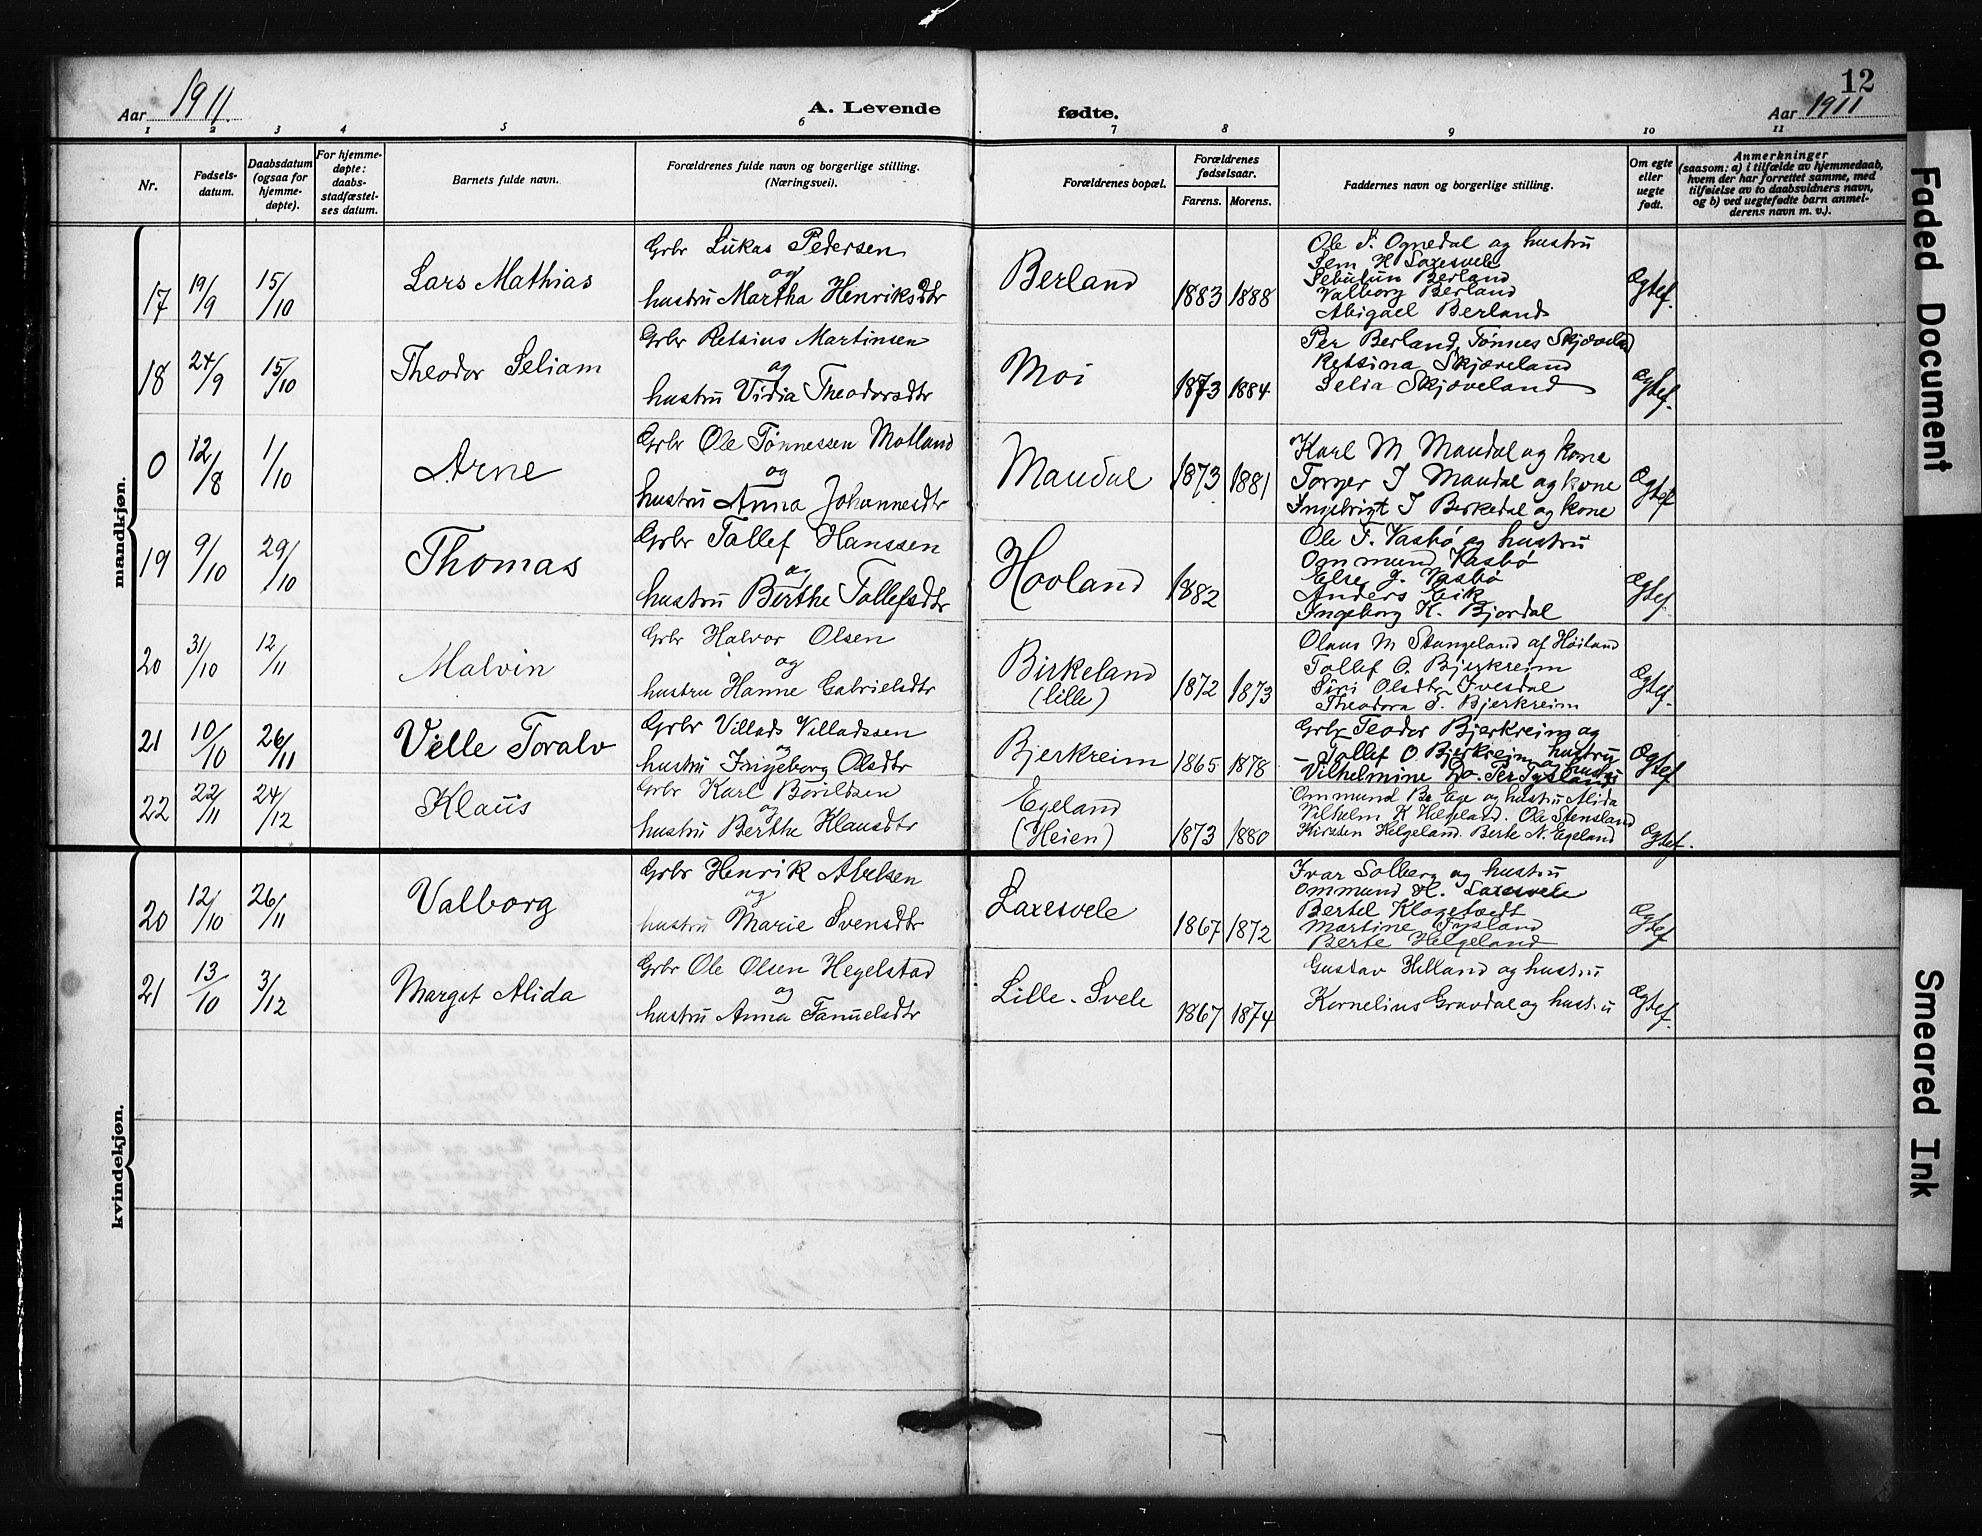 12
Aar 1911.
A. Levende fødte.
Aar 1911
1 2 3 4 5 6 7 8 9 10 11
Nr.
Fødsels-
datum.
Daabsdatum
(ogsaa for
hjemme-
døpte).
For hjemme-
døpte:
daabs-
stadfæstel-
ses datum.
Barnets fulde navn.
Forældrenes fulde navn og borgerlige stilling.
(Næringsvei).
Forældrenes bopæl.
Forældrenes
fødselsaar.
Farens. Morens.
Faddernes navn og borgerlige stilling.
Om egte
eller
uegte
født.
Anmerkninger
(saasom: a) i tilfælde av hjemmedaab,
hvem der har forrettet samme, med
tilføielse av to daabsvidners navn,
og b) ved uegtefødte barn anmel-
derens navn m. v.).
mandkjøn.
17 19/9 15/10 Lars Mathias
Grbr Lukas Pedersen
og
hustru Martha Henriksdtr
Berland 1883 1888
Ole S. Ognedal og hustru
Sem H Laxesvele
Sebulun Berland
Valborg Berland
Abigael Berland
Egtef.
18 24/9 15/10 Theodor Seliam
Grbr Retsius Martinsen
og
hustru Vidia Theodorsdtr
Moi 1873 1884
Per Berland, Tønnes Skjæveland
Retsina Skjæveland
Selia Skjæveland
Egtef.
0 12/8 1/10 Arne
Grbr Ole Tønnessen Motland
og
hustru Anna Johannesdtr
Maudal 1873 1881
Karl M Maudal og kone
Torger I Maudal og kone
Ingebrigt I Birkedal og kone
Egtef
19 9/10 29/10 Thomas
Grbr Tollef Hanssen
og
hustru Berthe Tollefsdtr
Hovland 1882
Ole T. Vasbø og hustru
Ommund Vasbø
Else J. Vasbø
Anders Eik
Ingeborg H. Bjordal
Egtef.
20 31/10 12/11 Malvin
Grbr Halvor Olsen
og
hustru Hanne Gabrielsdtr
Birkeland
(lille)
1872 1873
Olaus M Stangeland af Høiland
Tollef O. Bjerkreim
Siri Olsdtr Ivesdal
Theodora T. Bjerkreim
Egtef.
21 10/10 26/11 Ville Toralv
Grbr Villads Villadssen
og
hustru Ingeborg Olsdtr
Bjerkreim 1865 1878
Grbr Teodor Bjerkreim og
- Tollef O Bjerkreim hustru
Vilhelmine Do. Per Tysland og hustru
Egtef
22 22/11 24/12 Klaus
Grbr Karl Borildsen
og
hustru Berthe Klausdtr
Egeland
(Heien)
1873 1880
Ommund Br Ege og hustru Alida
Vilhelm K Helgeland. Ole Stensland
Kirsten Helgeland. Berte N. Egeland
Egtef.
kvindekjøn.
20 12/10 26/11 Valborg
Grbr Henrik Abelsen
og
hustru Marie Svensdtr
Laxesvele 1867 1872
Ivar Solberg og hustru
Ommund H. Laxesvele
Bertel Klogetvedt
Martine Tysland
Berte Helgeland
Egtef
21 13/10 3/12 Marget Alida
Grbr Ole Olsen Hegelstad
og
hustru Anna Tanuelsdtr
Lille-Svele 1867 1874
Gustav Helland og hustru
Kornelius Gravdal og hustru
Egtef.
Faded Document
Smeared Ink